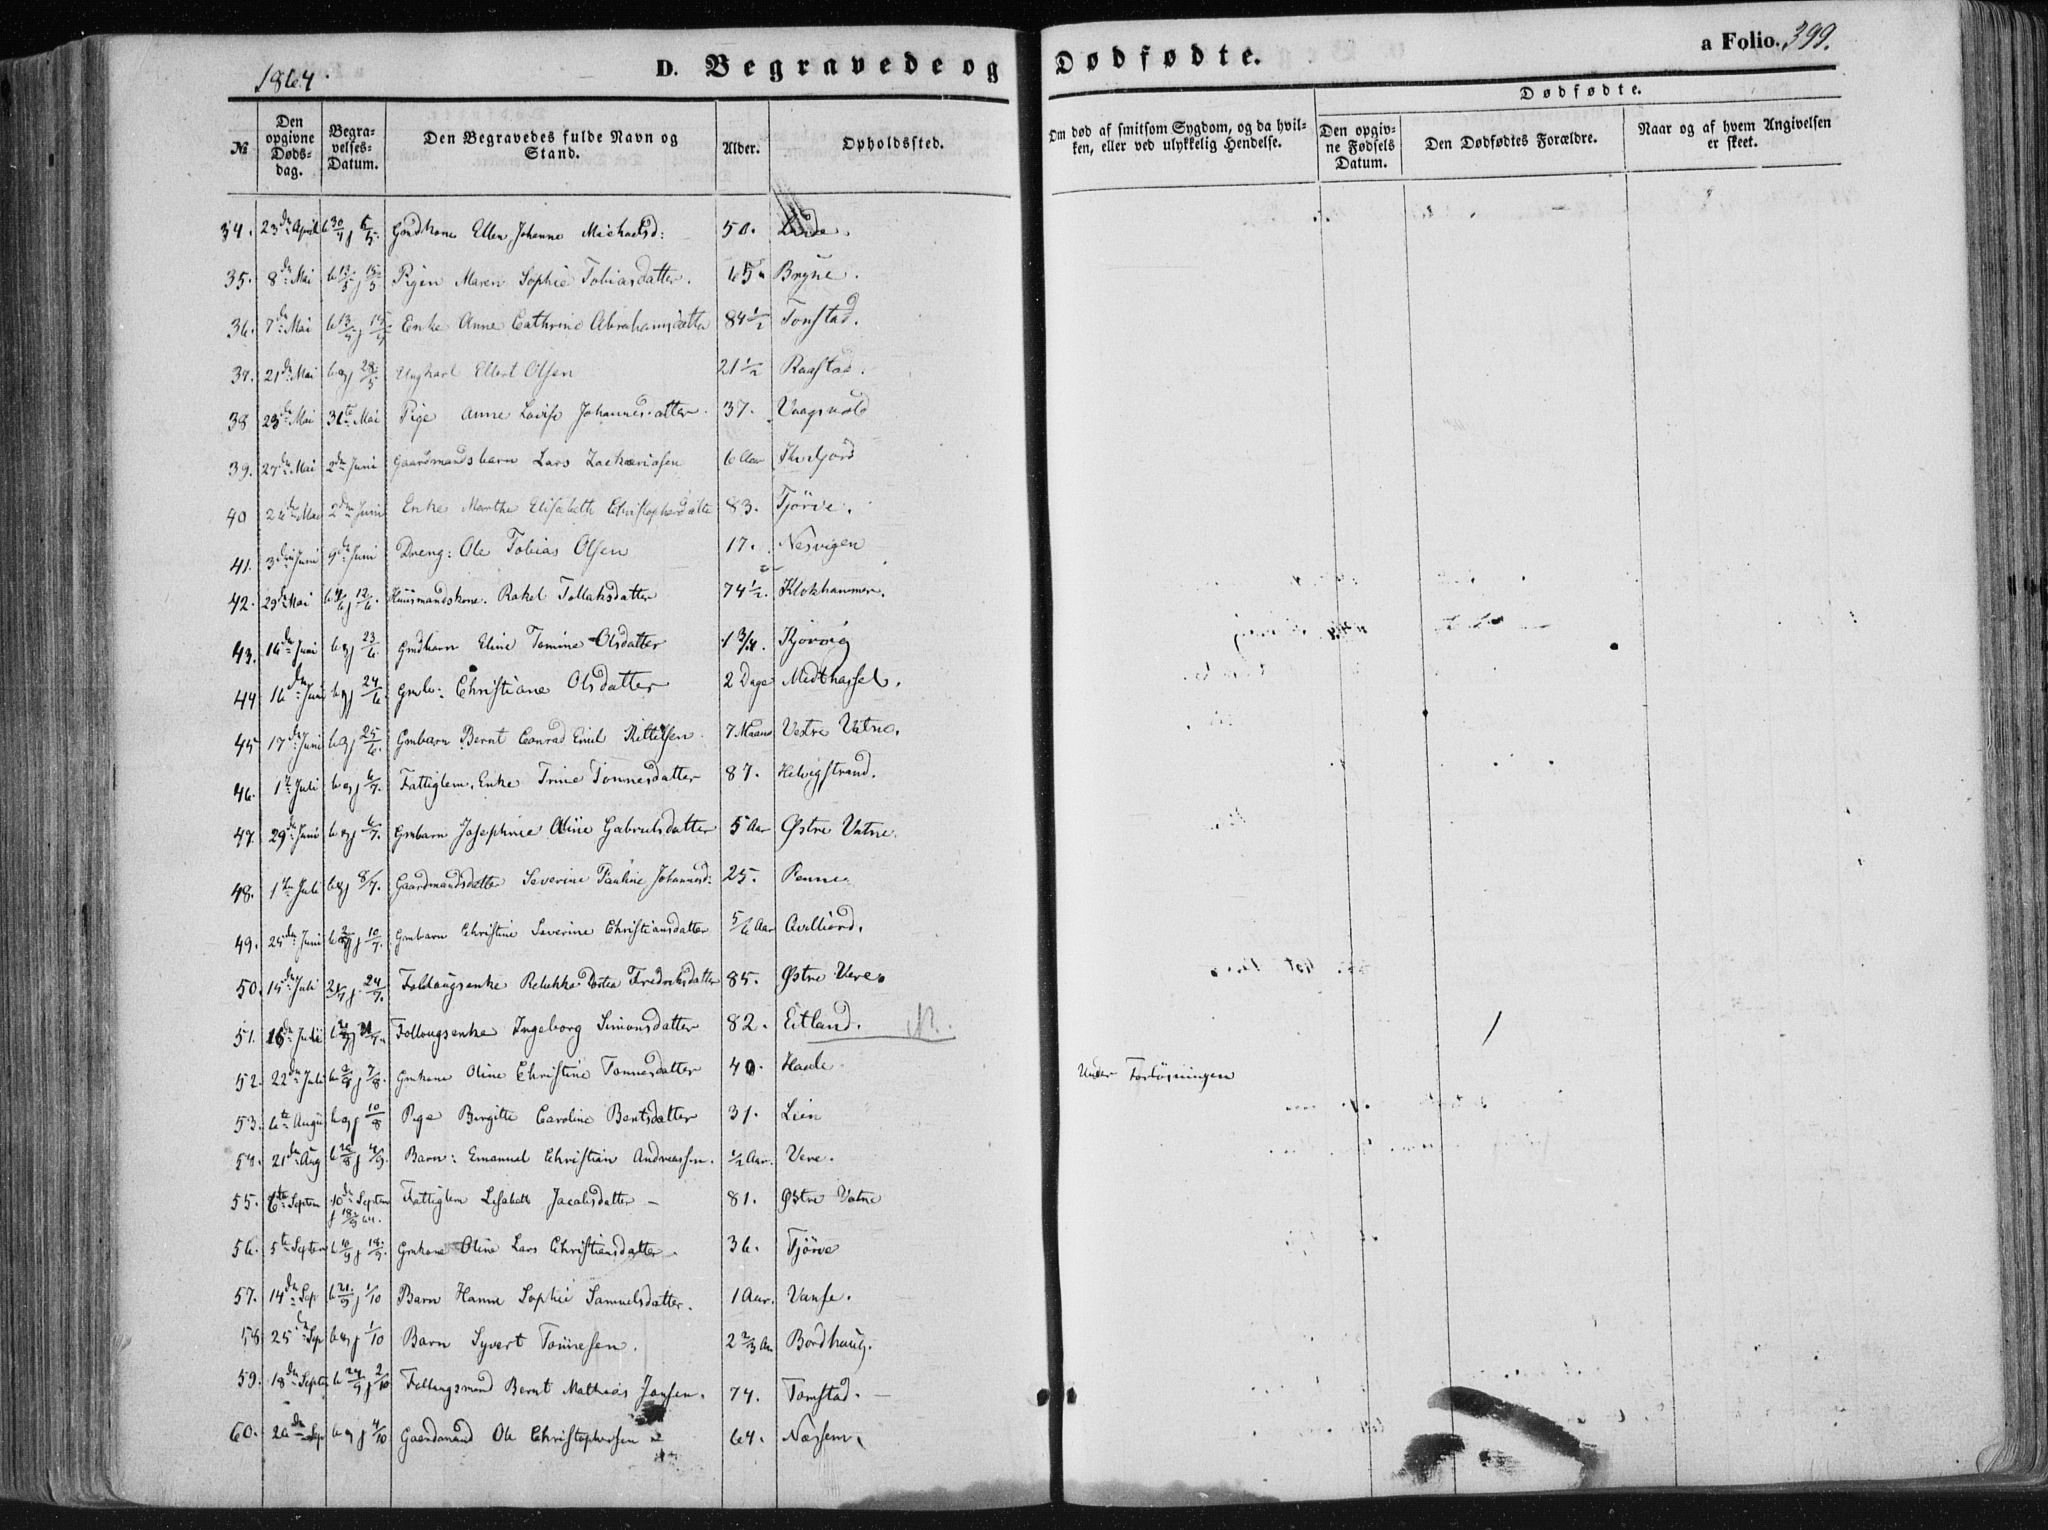 1864.
D. Begravede og Dødfødte.
a Folio. 399.
№
Den opgivne Døds-dag.
Begra-velses-Datum.
Den Begravedes fulde Navn og Stand.
Alder.
Opholdssted.
Om død af smitsom Sygdom, og da hvil-ken, eller ved ulykkelig Hendelse.
Dødfødte.
Den opgiv-ne Fødsels Datum.
Den Dødfødtes Forældre.
Naar og af hvem Angivelsen er skeet.
34. 23de April b 30/4 j 6/5. Gmdkone Ellen Johanne Michaelsd: 50.
35. 8de Mai b 13/5 j 15/5 Pigen Maren Sophie Tobiasdatter. 65. Bryne.
36. 7de Mai b 13/5 j 15/5 Enke Anne Cathrine Abrahamsdatter 84 1/2 Tomstad.
37. 21de Mai beg j 28/5 Ungkarl Ellert Olsen 21 1/2 Raastad.
38 23de Mai 31te Mai Pige Anne Lovise Johannesdatter. 37. Vaagsvold
39. 27de Mai 2den Juni Gaardmandsbarn Lars Zachariasen 6 Aar
40 26de Mai 2den Juni Enke Marthe Elisabeth Christophersdatte 83. Tjörve.
41. 3die Juni 9de Juni Dreng: Ole Tobias Olsen 17. Nesvigen
42. 29de Mai b 4/6 j 12/6. Huusmandskone. Rakel Tollaksdatter 74 1/2. Klokhammer.
43. 16de Juni beg j 23/6. Gmdbarn Eline Tomine Olsdatter 1 3/4. Kjörvig
44 16de Juni beg j 24/6. Gmb: Christiane Olsdatter 2 Dage Midthassel.
45 17de Juni beg j 25/6. Gmbarn Bernt Conrad Emil Kittelsen. 7 Maan Vestre Vatne.
46. 1te Juli beg j 6/7. Fattiglem, Enke Trine Tönnesdatter 87. Helvigstrand.
47. 29de Juni beg j 6/7. Gmbarn Josephine Oline Gabrielsdatter 5 Aar Østre Vatne.
48. 1te Juli beg j 8/7. Gaardmandsdatter Severine Pauline Johannesd: 25. Penne
49. 25de Juni b 2/7 j 10/7. Gmbarn Christine Severine Christiansdatter 5/6 Aar
50. 15de Juli 21/7 j 24/7. Foldougsenke Rebekka Dortea Fredriksdatter 85. Østre Vere.
51. 16de Juli j 31/7. Follougsenke Ingeborg Simonsdatter 82. Eitland.
52. 22de Juli j 7/8. Gmkone Oline Christine Tönnesdatter 40. Haale. Under Forlösningen
53. 6te Augu beg j 10/8 Pige Birgitte Caroline Berntsdatter 31. Lien
54. 21de Aug b 26/8 j 4/9. Barn: Emanuel Christian Andreassen. 1/2 Aar. Vere.
55. 6te Septem 10de Septem j 18/9 64. Fattiglem Lisabeth Jacobsdatter – 81. Østre Vatne
56. 5te Septem b 6/9 j 18/9. Gmkone Oline Lars Christiansdatter 36. Tjörve
57. 14de Sep b 21/9 j 1/10 Barn Hanne Sophie Samuelsdatter. 1 Aar. Vanse.
58 25de Sep beg j 1/10 Barn Syvert Tönnesen. 2 2/3 Aa Bordhaug.
59. 18de Septem b 24/9 j 2/10 Follougsmand Bernt Mathias Jansen. 74. Tomstad. –
60. 26de Sep beg j 4/10 Gaardmand Ole Christophersen 64. Næssem.